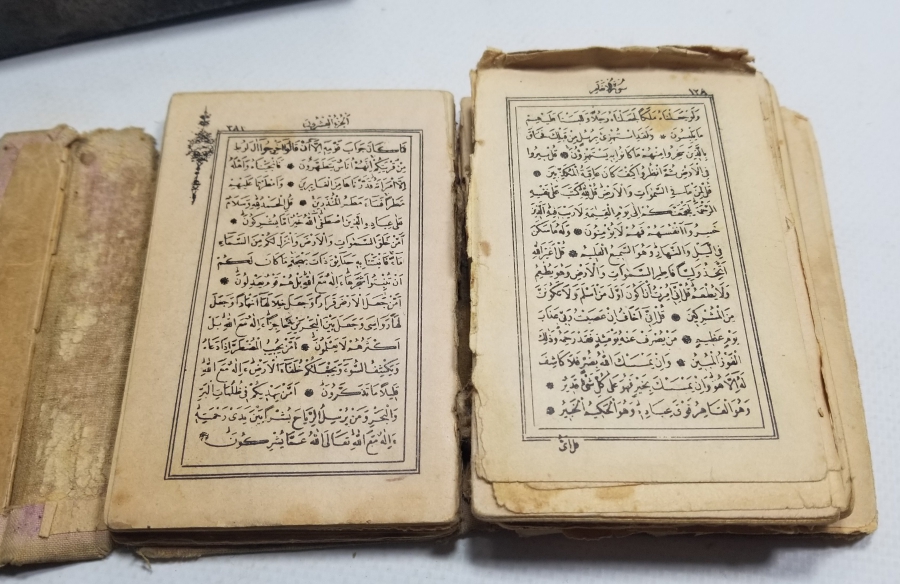 سورة الانعام ١٢٨
وَلَوْ جَعَلْنَاهُ مَلَكًا لَجَعَلْنَاهُ رَجُلًا وَلَلَبَسْنَا عَلَيْهِمْ
مَا يَلْبِسُونَ ۞ وَلَقَدِ اسْتُهْزِئَ بِرُسُلٍ مِنْ قَبْلِكَ فَحَاقَ
بِالَّذِينَ سَخِرُوا مِنْهُمْ مَا كَانُوا بِهِ يَسْتَهْزِؤُنَ ۞ قُلْ سِيرُوا
فِي الْاَرْضِ ثُمَّ انْظُرُوا كَيْفَ كَانَ عَاقِبَةُ الْمُكَذِّبِينَ ۞
قُلْ لِمَنْ مَا فِي السَّمٰوَاتِ وَالْاَرْضِ قُلْ لِلّٰهِ كَتَبَ عَلٰى نَفْسِهِ
الرَّحْمَةَ لَيَجْمَعَنَّكُمْ اِلٰى يَوْمِ الْقِيٰمَةِ لَا رَيْبَ فِيهِ اَلَّذِينَ
خَسِرُوا اَنْفُسَهُمْ فَهُمْ لَا يُؤْمِنُونَ ۞ وَلَهُ مَا سَكَنَ
فِي الَّيْلِ وَالنَّهَارِ وَهُوَ السَّمِيعُ الْعَلِيمُ ۞ قُلْ اَغَيْرَ اللّٰهِ
اَتَّخِذُ وَلِيًّا فَاطِرِ السَّمٰوَاتِ وَالْاَرْضِ وَهُوَ يُطْعِمُ
وَلَا يُطْعَمُ قُلْ اِنِّي اُمِرْتُ اَنْ اَكُونَ اَوَّلَ مَنْ اَسْلَمَ وَلَا تَكُونَنَّ
مِنَ الْمُشْرِكِينَ ۞ قُلْ اِنِّي اَخَافُ اِنْ عَصَيْتُ رَبِّي عَذَابَ
يَوْمٍ عَظِيمٍ ۞ مَنْ يُصْرَفْ عَنْهُ يَوْمَئِذٍ فَقَدْ رَحِمَهُ وَذٰلِكَ
الْفَوْزُ الْمُبِينُ ۞ وَاِنْ يَمْسَسْكَ اللّٰهُ بِضُرٍّ فَلَا كَاشِفَ
لَهُ اِلَّا هُوَ وَاِنْ يَمْسَسْكَ بِخَيْرٍ فَهُوَ عَلٰى كُلِّ شَيْءٍ قَدِيرٌ ۞
وَهُوَ الْقَاهِرُ فَوْقَ عِبَادِهِ وَهُوَ الْحَكِيمُ الْخَبِيرُ ۞
قل اى
الجزء العشرون ٣٨١
فَمَا كَانَ جَوَابَ قَوْمِهِ اِلَّا اَنْ قَالُوا اَخْرِجُوا اٰلَ لُوطٍ
مِنْ قَرْيَتِكُمْ اِنَّهُمْ اُنَاسٌ يَتَطَهَّرُونَ ۞ فَاَنْجَيْنَاهُ وَاَهْلَهُ
اِلَّا امْرَاَتَهُ قَدَّرْنَاهَا مِنَ الْغَابِرِينَ ۞ وَاَمْطَرْنَا عَلَيْهِمْ
مَطَرًا فَسَاءَ مَطَرُ الْمُنْذَرِينَ ۞ قُلِ الْحَمْدُ لِلّٰهِ وَسَلَامٌ
عَلٰى عِبَادِهِ الَّذِينَ اصْطَفٰى آللّٰهُ خَيْرٌ اَمَّا يُشْرِكُونَ ۞
اَمَّنْ خَلَقَ السَّمٰوَاتِ وَالْاَرْضَ وَاَنْزَلَ لَكُمْ مِنَ السَّمَاءِ
مَاءً فَاَنْبَتْنَا بِهِ حَدَائِقَ ذَاتَ بَهْجَةٍ مَا كَانَ لَكُمْ
اَنْ تُنْبِتُوا شَجَرَهَا ءَاِلٰهٌ مَعَ اللّٰهِ بَلْ هُمْ قَوْمٌ يَعْدِلُونَ ۞
اَمَّنْ جَعَلَ الْاَرْضَ قَرَارًا وَجَعَلَ خِلَالَهَا اَنْهَارًا وَجَعَلَ
لَهَا رَوَاسِيَ وَجَعَلَ بَيْنَ الْبَحْرَيْنِ حَاجِزًا ءَاِلٰهٌ مَعَ اللّٰهِ بَلْ
اَكْثَرُهُمْ لَا يَعْلَمُونَ ۞ اَمَّنْ يُجِيبُ الْمُضْطَرَّ اِذَا دَعَاهُ
وَيَكْشِفُ السُّوءَ وَيَجْعَلُكُمْ خُلَفَاءَ الْاَرْضِ ءَاِلٰهٌ مَعَ اللّٰهِ
قَلِيلًا مَا تَذَكَّرُونَ ۞ اَمَّنْ يَهْدِيكُمْ فِي ظُلُمَاتِ الْبَرِّ
وَالْبَحْرِ وَمَنْ يُرْسِلُ الرِّيَاحَ بُشْرًا بَيْنَ يَدَيْ رَحْمَتِهِ
ءَاِلٰهٌ مَعَ اللّٰهِ تَعَالَى اللّٰهُ عَمَّا يُشْرِكُونَ ۞